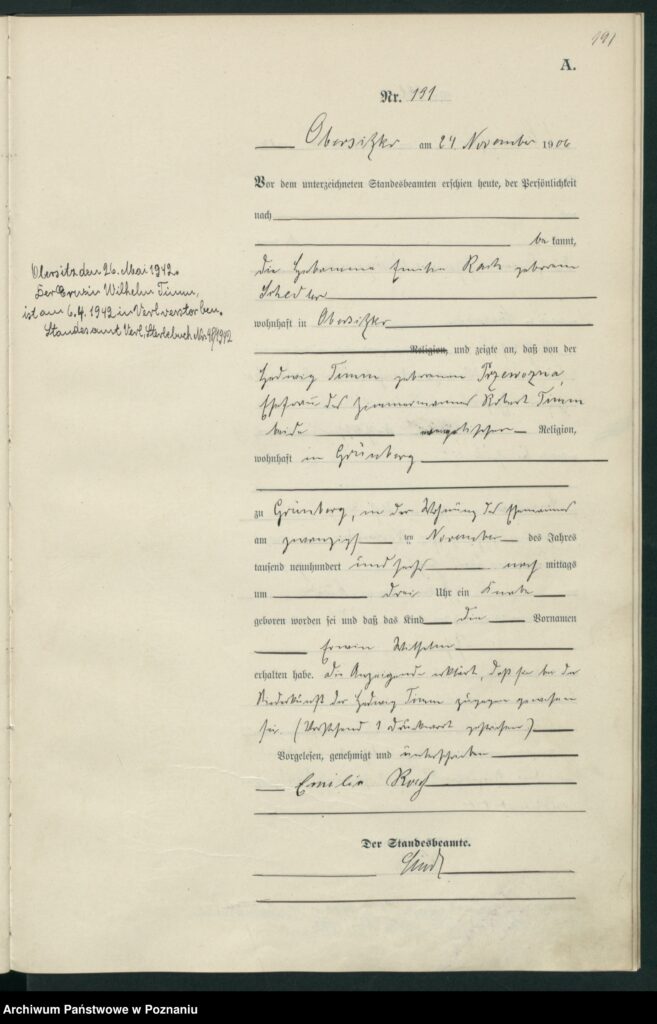 191
A.
Nr. 191
Obersitzko am 24 November 1906
Vor dem unterzeichneten Standesbeamten erschien heute, der Persönlichkeit
nach
bekannt,
die Hebamme Emilie geborene
wohnhaft in Obersitzko
Religion, und zeigte an, daß von der
Hedwig Timm geborenen Przewozna,
Ehefrau des Zimmermannes Robert Timm
beide evangelischer Religion,
wohnhaft in Grünberg
zu Grünberg, in der Wohnung des Ehemannes
am zwanzigsten November des Jahres
tausend neunhundert und sechs nach mittags
um drei Uhr ein Knabe
geboren worden sei und daß das Kind die Vornamen
Erwin Wilhelm
erhalten habe. Die Anzeigende erklärt, daß sie bei der
Niederkunft der Hedwig Timm zugegen gewesen
sei. (Vorstehend 1 Druckwort gestrichen)
Vorgelesen, genehmigt und unterschrieben
Emilie
Der Standesbeamte.
Obersitz den 26. Mai 1942.
Der Erwin Wilhelm Timm,
ist am 6.4.1942 in Verl verstorben.
Standesamt Verl, Sterbebuch Nr. 1942
Archiwum Państwowe w Poznaniu